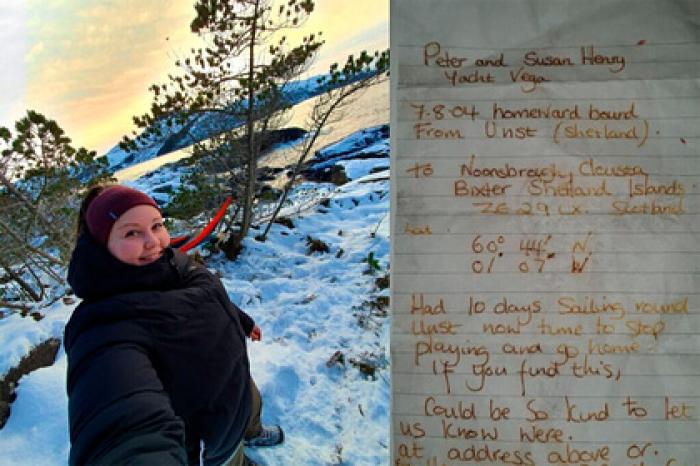 Peter and Susan Henry
Yacht Vega
7.8.04 homeward bound
From Unst (Shetland).
to Noonsbrough, Clousta
Bixter Shetland Islands
ZE2 9LX. Scotland
Lat
60° 44' N
01° 07' W
Had 10 days Sailing round
Unst now time to Stop
playing and go home.
If you find this,
Could be so kind to let
us know were.
at address above or.